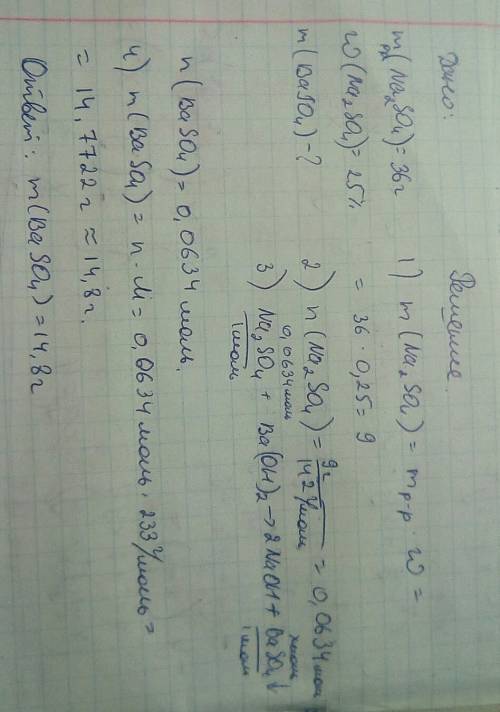 Дано:
m р-р (Na2SO4) = 36г
ω (Na2SO4) = 25%
m (BaSO4) - ?
Решение.
1) m (Na2SO4) = m р-р · ω =
= 36 · 0,25 = 9
2) n (Na2SO4) = 9г / 142 г/моль = 0,0634 моль
0,0634 моль х моль
3) Na2SO4 + Ba(OH)2 → 2NaOH + BaSO4↓
1 моль 1 моль
n (BaSO4) = 0,0634 моль.
4) m (BaSO4) = n · M = 0,0634 моль · 233 г/моль =
= 14,7722 г ≈ 14,8г.
Ответ: m (BaSO4) = 14,8 г